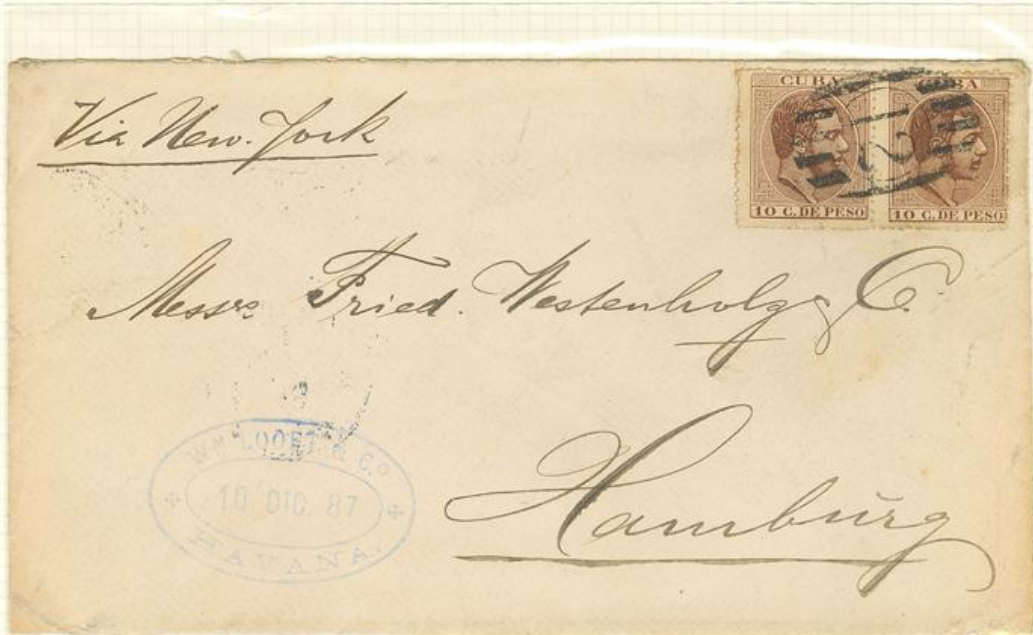 Via New-York
CUBA CUBA
10 C. DE PESO 10 C. DE PESO
Messrs Fried. Westenholz & C.
Hamburg
WM LOOFT & Co
10 DIC. 87
HAVANA.